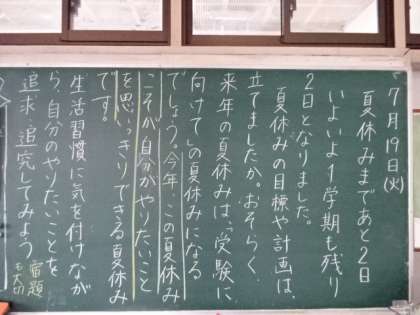 ７月１９日(火)
夏休みまであと２日
いよいよ１学期も残り
２日となりました。
夏休みの目標や計画は、
立てましたか。おそらく、
来年の夏休みは、「受験に
向けて」の夏休みになる
でしょう。今年、この夏休み
こそが、自分がやりたいこと
を思いっきりできる夏休み
です。
生活習慣に気を付けなが
ら、自分のやりたいことを
追求・追究してみよう
宿題